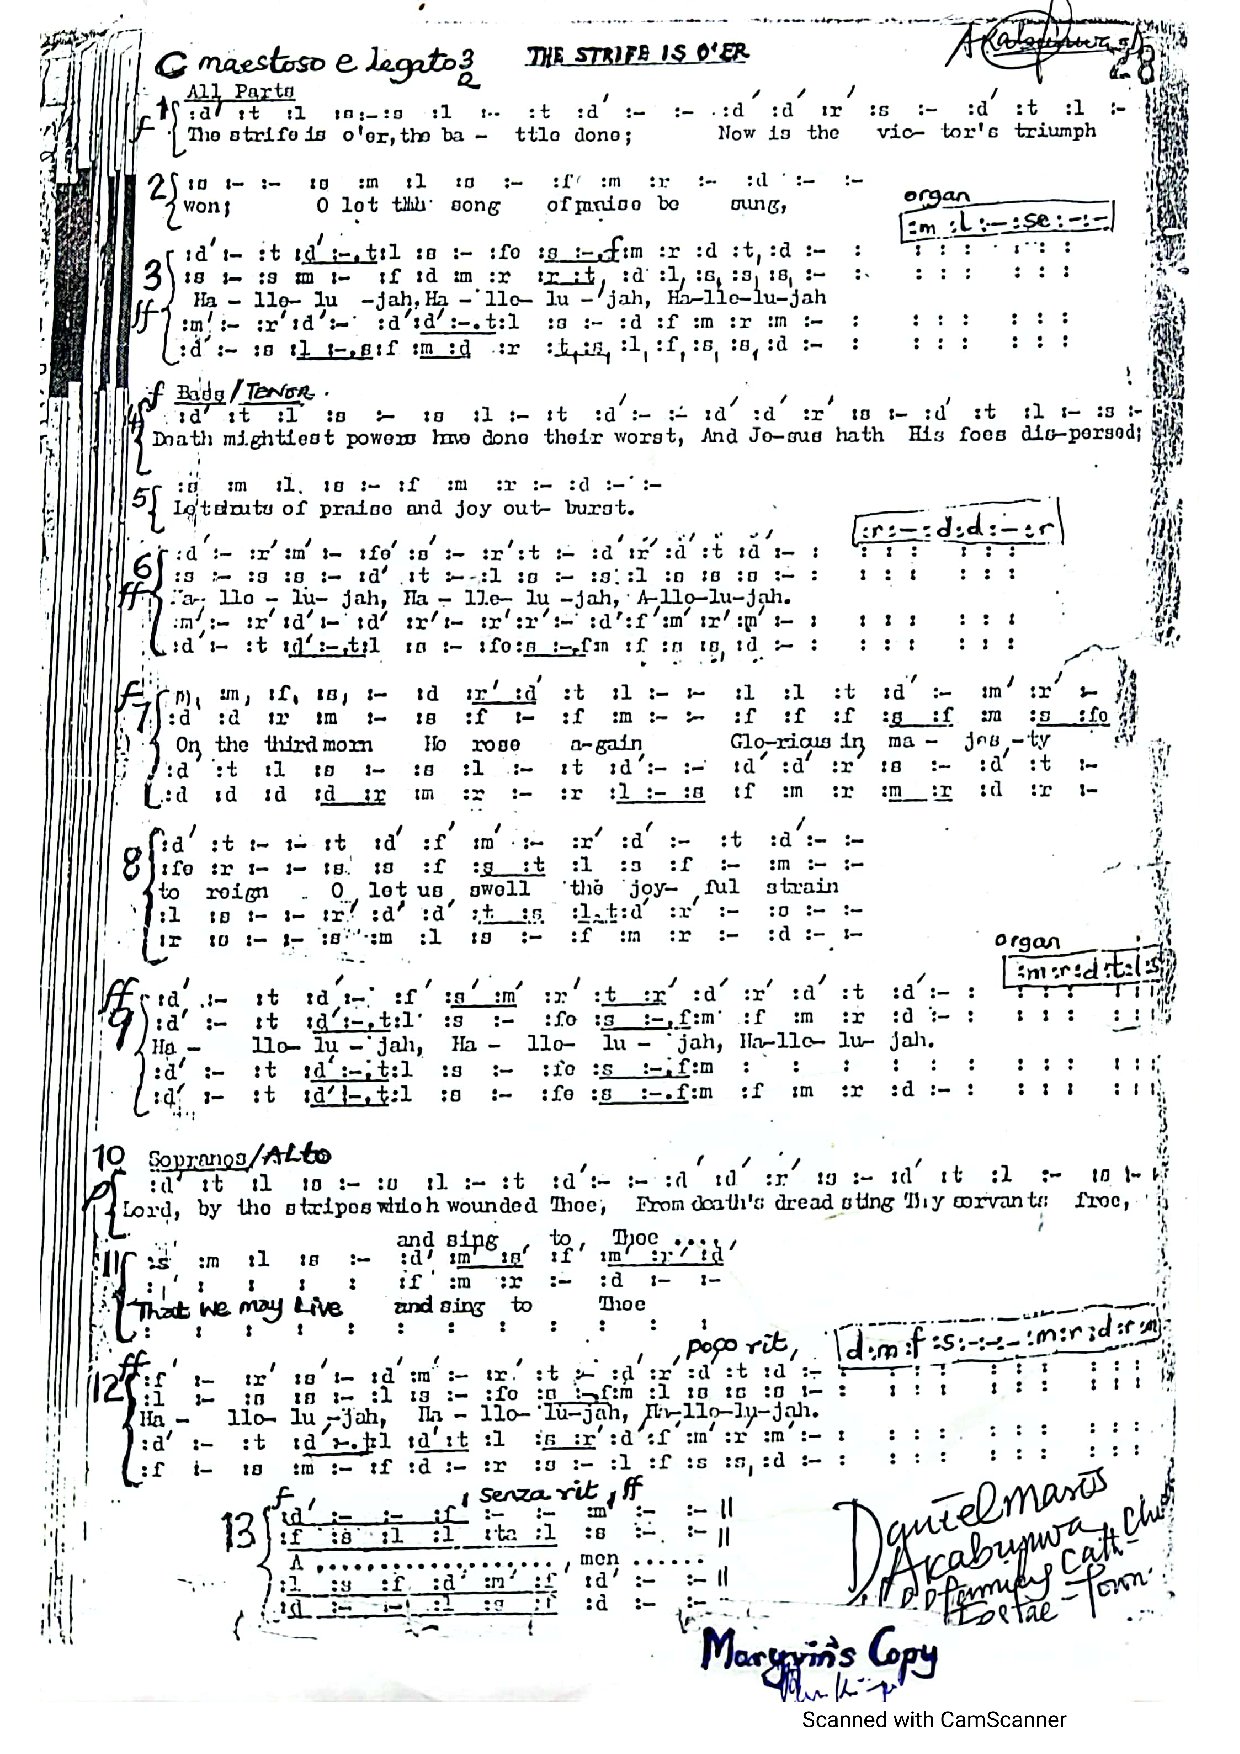 THE STRIFE IS O'ER
28
C maestoso e legato 3
2
All Parts
1 :d' :t :l :s :- :s :l :- :t :d' :- :- :d' :d' :r' :s :- :d' :t :l :-
f The strife is o'er, the ba - ttle done; Now is the vic- tor's triumph
2 :s :- :- :s :m :l :s :- :f :m :r :- :d :- :-
won; O let song of praise be sung,
organ
:m :l :- :se :- :-
3 :d' :- :t :d' :-.t:l :s :- :fe :s :-.f:m :r :d :t, :d :- :
:s :- :s :m :- :f :d :m :r :r :t, :d :l, :s, :s, :s, :- :
Ha - lle- lu -jah, Ha - lle- lu - jah, Ha-lle-lu-jah
ff :m' :- :r' :d' :- :d' :d' :-.t:l :s :- :d :f :m :r :m :- :
:d' :- :s :l :-.s:f :m :d :r :t, :s, :l, :f, :s, :s, :d :- :
f Bass/TENOR.
4 :d' :t :l :s :- :s :l :- :t :d' :- :- :d' :d' :r' :s :- :d' :t :l :- :s :-
Death mightiest powers have done their worst, And Je-sus hath His foes dis-persed;
5 :s :m :l :s :- :f :m :r :- :d :- :-
of praise and joy out- burst.
:r :- :d :d :- :r
6 :d' :- :r' :m' :- :fe' :s' :- :r' :t :- :d' :r' :d' :t :d' :- :
ff :s :- :s :s :- :d' :t :- :l :s :- :s :l :s :s :s :- :
lle - lu- jah, Ha - lle- lu -jah, A-lle-lu-jah.
:m' :- :r' :d' :- :d' :r' :- :r' :r' :- :d' :f' :m' :r' :m' :- :
:d' :- :t :d' :-.t:l :s :- :fe :s :-.f:m :f :s :s, :d :- :
f
7 m, :m, :f, :s, :- :d :r' :d' :t :l :- :- :l :l :t :d' :- :m' :r' :-
:d :d :r :m :- :s :f :- :f :m :- :- :f :f :f :s :f :m :s :fe
On the third morn He rose a-gain Glo-rious in ma - jes -ty
:d' :t :l :s :- :s :l :- :t :d' :- :- :d' :d' :r' :s :- :d' :t :-
:d :d :d :d :r :m :r :- :r :l :- :s :f :m :r :m :r :d :r :-
8 :d' :t :- :- :t :d' :f' :m' :- :r' :d' :- :t :d' :- :-
:fe :r :- :- :s :s :f :s :t :l :s :f :- :m :- :-
to reign O let us swell the joy- ful strain
:l :s :- :- :r' :d' :d' :t :s :l.t:d' :r' :- :s :- :-
:r :s :- :- :s :m :l :s :- :f :m :r :- :d :- :-
organ
:m :r :d :t :l :s
ff
9 :d' :- :t :d' :- :f' :s' :m' :r' :t :r' :d' :r' :d' :t :d' :- :
:d' :- :t :d' :-.t:l :s :- :fe :s :-.f:m :f :m :r :d :- :
Ha - lle- lu - jah, Ha - lle- lu - jah, Ha-lle- lu- jah.
:d' :- :t :d' :-.t:l :s :- :fe :s :-.f:m : : : : : :
:d' :- :t :d' :-.t:l :s :- :fe :s :-.f:m :f :m :r :d :- :
10 Sopranos/ALto
:d' :t :l :s :- :s :l :- :t :d' :- :- :d' :d' :r' :s :- :d' :t :l :- :s :-
p Lord, by the stripes which wounded Thee, From death's dread sting Thy servants free,
and sing to Thee ....
11 :s :m :l :s :- :d' :m' :s' :f' :m' :r' :d'
: : : : : :f :m :r :- :d :- :-
That we may Live and sing to Thee
: : : : : : : : : : : :
poco rit,
d :m :f :s :- :- :- :m :r :d :r :m
ff
12 :f' :- :r' :s' :- :d' :m' :- :r' :t :- :d' :r' :d' :t :d :-
:l :- :s :s :- :l :s :- :fe :s :-.f:m :l :s :s :s :- :
Ha - lle- lu -jah, Ha - lle- lu-jah, -lle-lu-jah.
:d' :- :t :d' :-.t:l :d' :t :l :s :r' :d' :f' :m' :r' :m' :- :
:f :- :s :m :- :f :d :- :r :s :- :l :f :s :s, :d :- :
f senza rit, ff
13 :d' :- :- :f' :- :- :m' :- :- ||
:f :s :l :l :ta :l :s :- :- ||
A .................., men ......
:l :s :f :d' :m' :f' :d' :- :- ||
:d :- :- :l :s :f :d :- :-
Daniel
Akabunwa
Town
Maryvin's Copy
Scanned with CamScanner